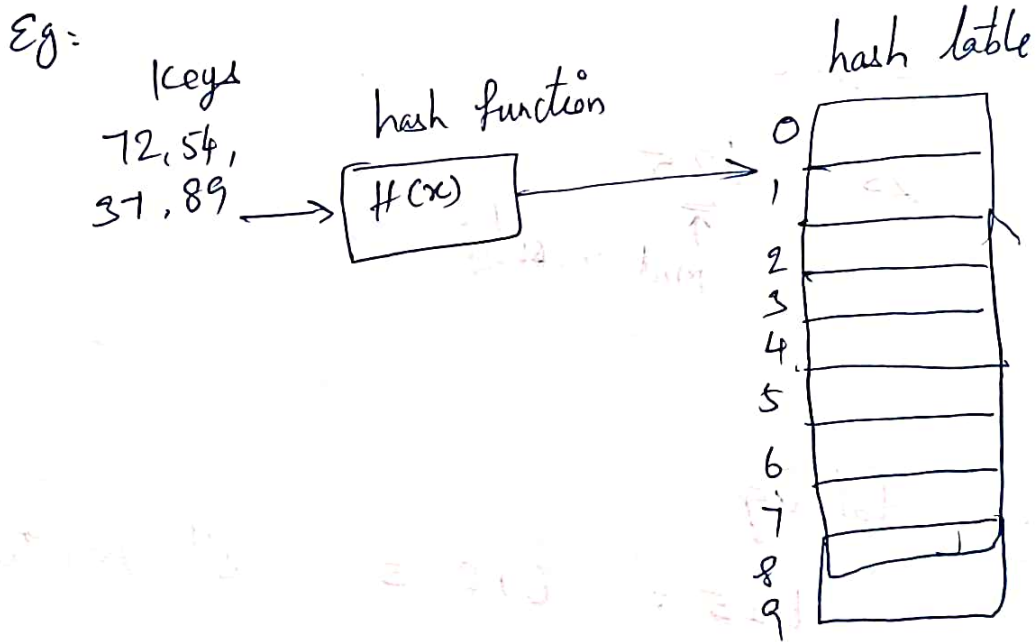 Eg:
keys
72, 54,
37, 89
hash function
H(x)
hash table
0
1
2
3
4
5
6
7
8
9